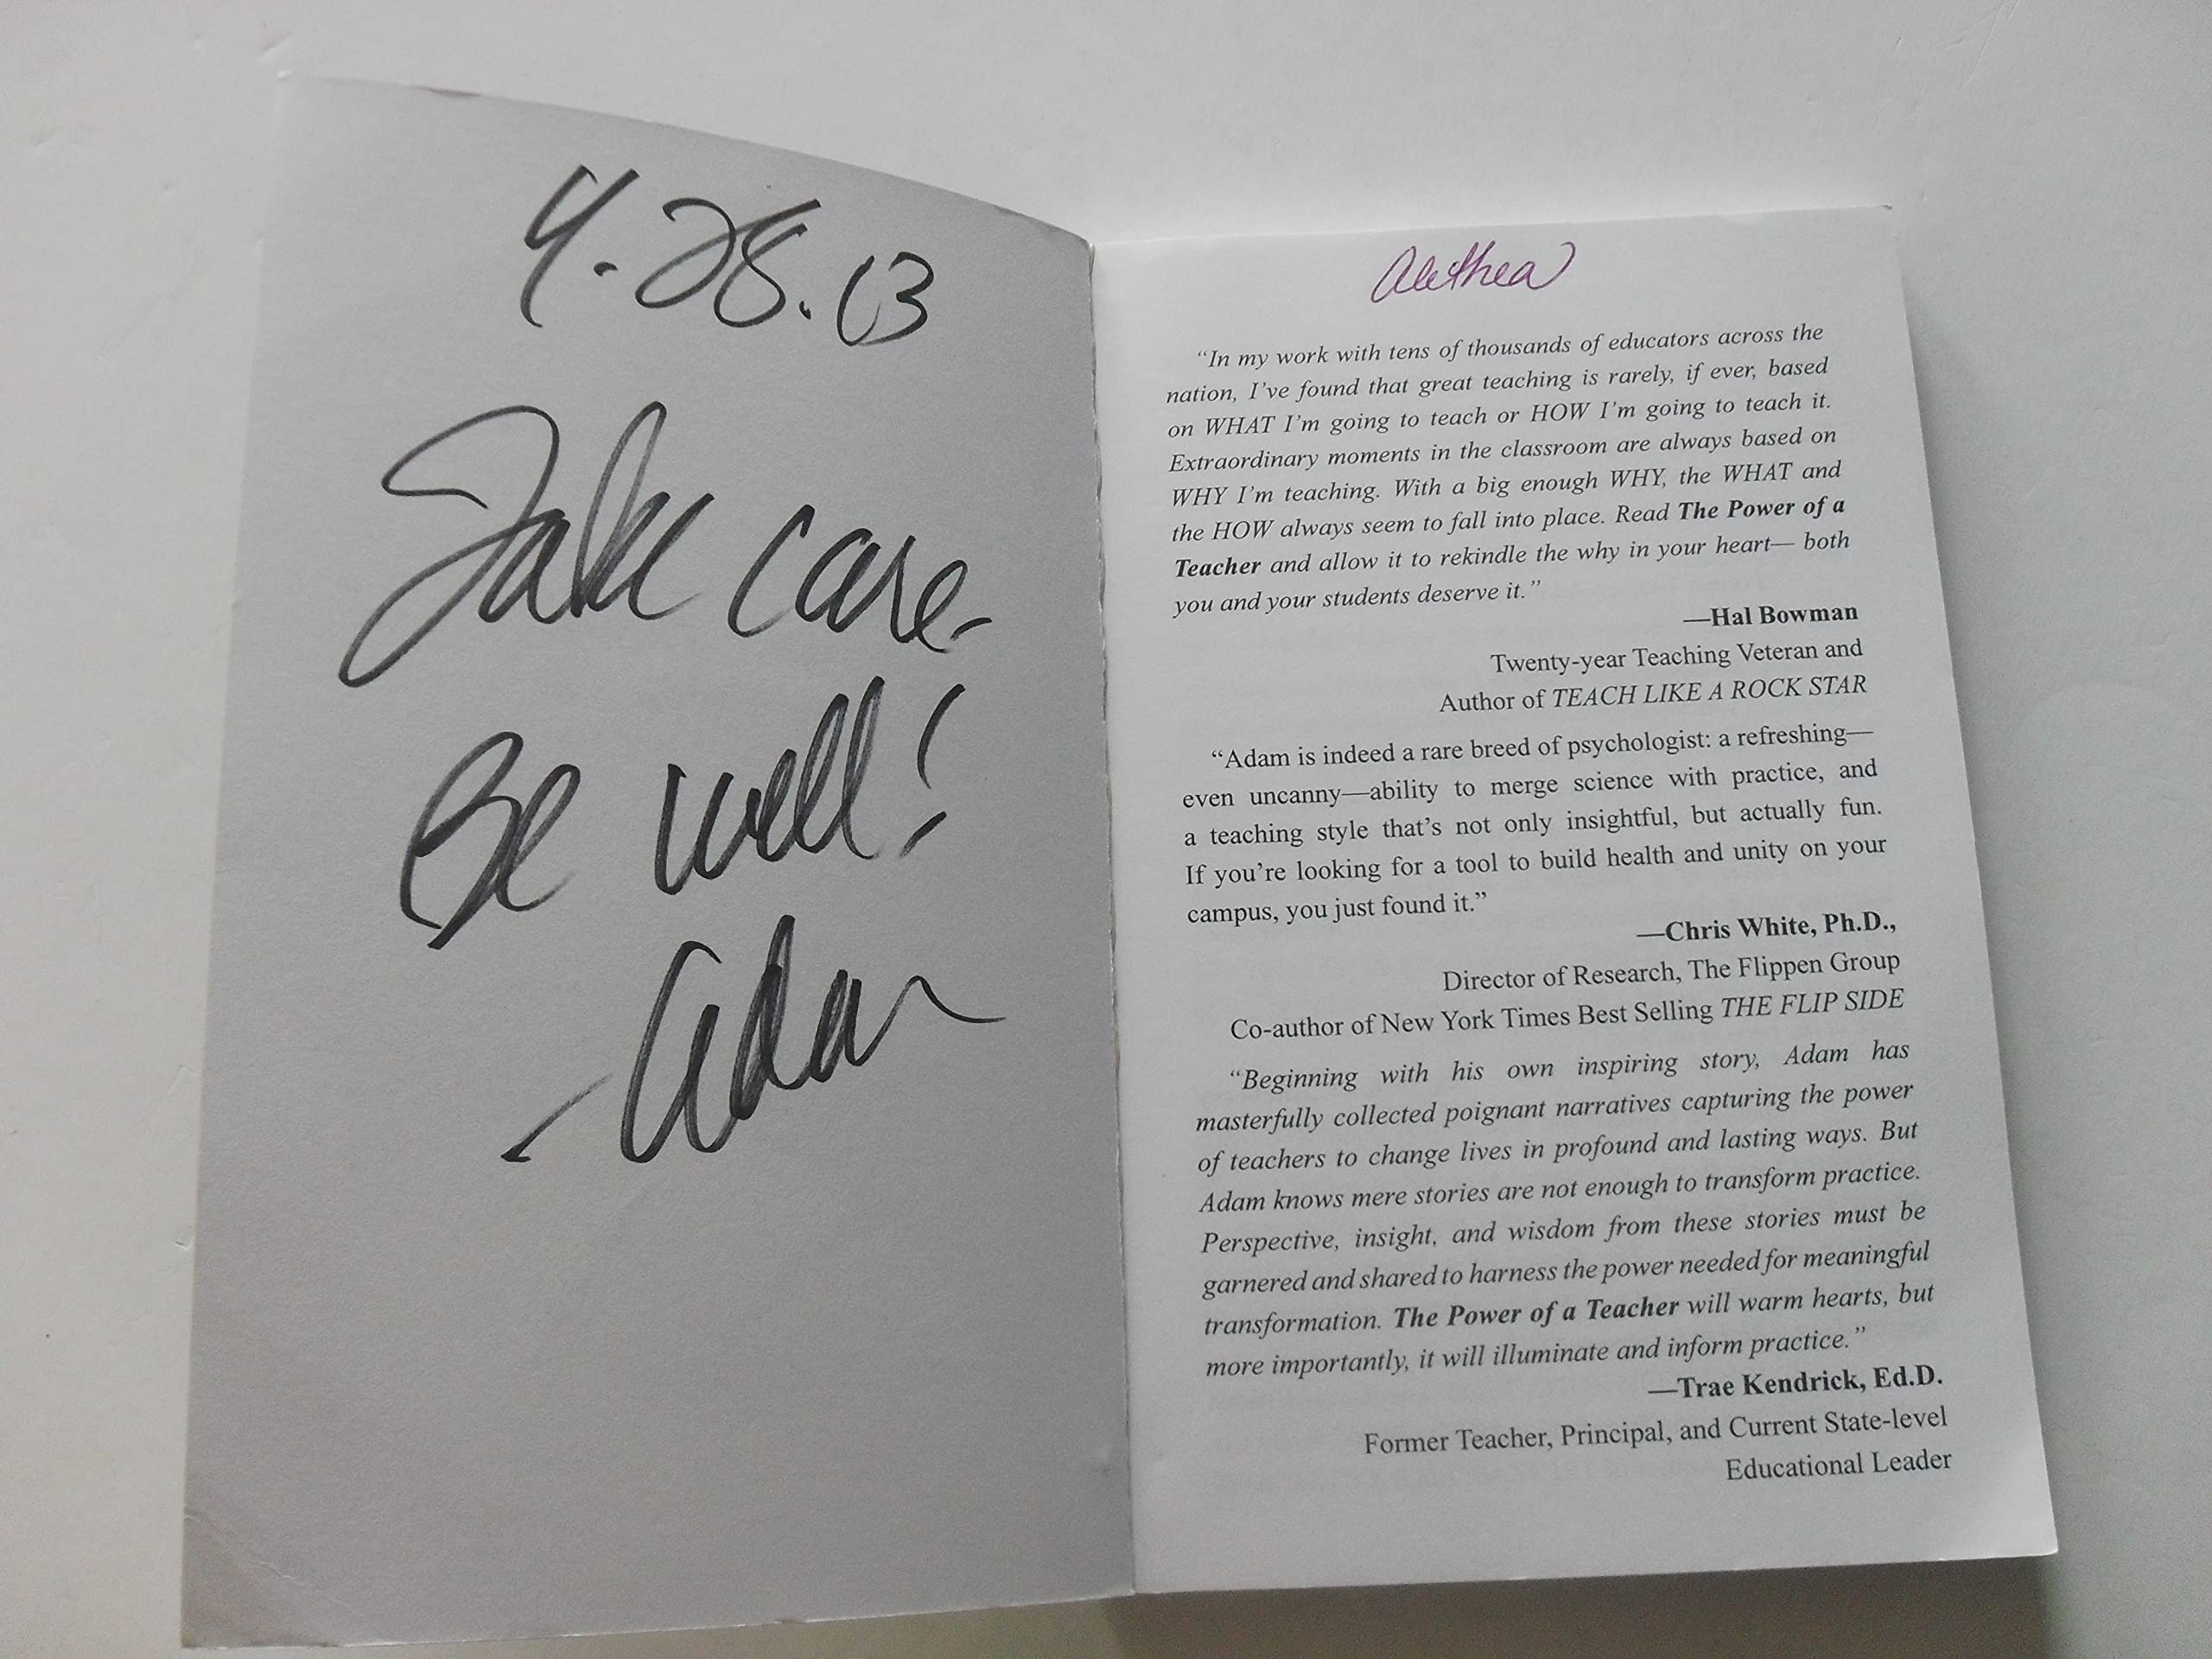 4.28.13
Take care-
Be well!
-Adam
Alethea
“In my work with tens of thousands of educators across the
nation, I’ve found that great teaching is rarely, if ever, based
on WHAT I’m going to teach or HOW I’m going to teach it.
Extraordinary moments in the classroom are always based on
WHY I’m teaching. With a big enough WHY, the WHAT and
the HOW always seem to fall into place. Read The Power of a
Teacher and allow it to rekindle the why in your heart— both
you and your students deserve it.”
—Hal Bowman
Twenty-year Teaching Veteran and
Author of TEACH LIKE A ROCK STAR
“Adam is indeed a rare breed of psychologist: a refreshing—
even uncanny—ability to merge science with practice, and
a teaching style that’s not only insightful, but actually fun.
If you’re looking for a tool to build health and unity on your
campus, you just found it.”
—Chris White, Ph.D.,
Director of Research, The Flippen Group
Co-author of New York Times Best Selling THE FLIP SIDE
“Beginning with his own inspiring story, Adam has
masterfully collected poignant narratives capturing the power
of teachers to change lives in profound and lasting ways. But
Adam knows mere stories are not enough to transform practice.
Perspective, insight, and wisdom from these stories must be
garnered and shared to harness the power needed for meaningful
transformation. The Power of a Teacher will warm hearts, but
more importantly, it will illuminate and inform practice.”
—Trae Kendrick, Ed.D.
Former Teacher, Principal, and Current State-level
Educational Leader